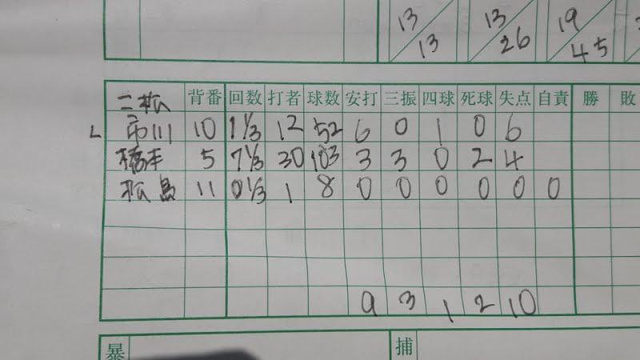 13 13 19
13 26 45
二松 背番 回数 打者 球数 安打 三振 四球 死球 失点 自責 勝 敗
L 市川 10 1 1/3 12 52 6 0 1 0 6
橋本 5 7 1/3 30 103 3 3 0 2 4
松島 11 0 1/3 1 8 0 0 0 0 0 0
9 3 1 2 10
暴 捕